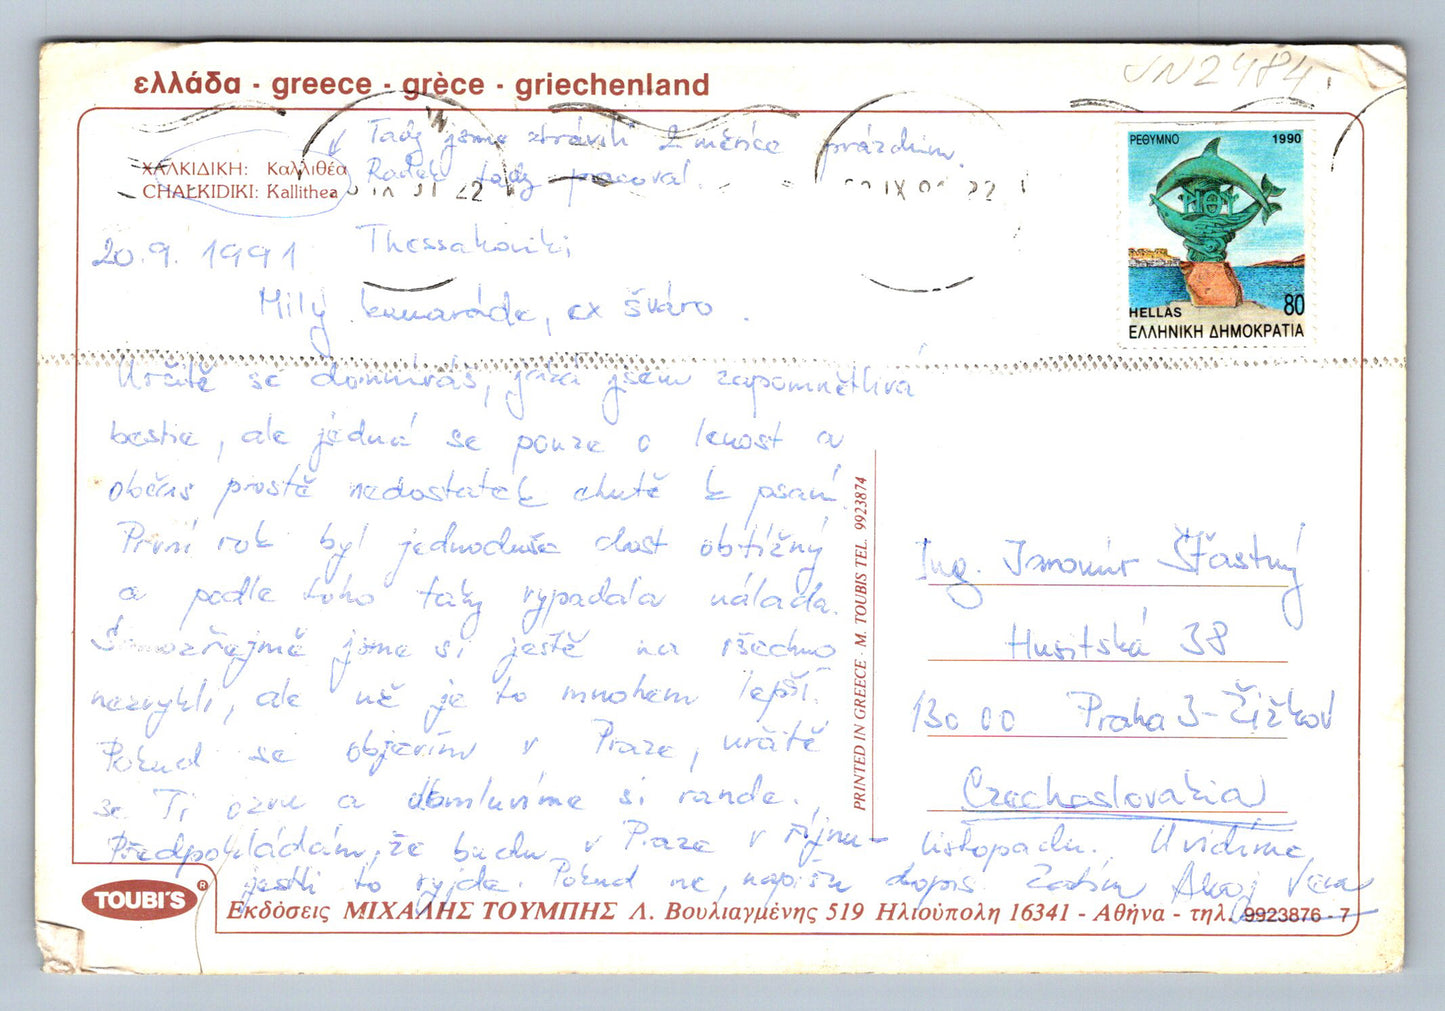 ελλάδα - greece - grèce - griechenland
JN2484
ΧΑΛΚΙΔΙΚΗ: Καλλιθέα
CHALKIDIKI: Kallithea
Tady jsme strávili 2 měsíce prázdnin.
Radek tady pracoval.
ΡΕΘΥΜΝΟ 1990
HELLAS 80
ΕΛΛΗΝΙΚΗ ΔΗΜΟΚΡΑΤΙΑ
20.9.1991 Thessaloniki
Milý kamaráde, ex šváro.
Určitě se domníváš, jaká jsem zapomnětlivá
bestie, ale jedná se pouze o lenost a
občas prostě nedostatek chutě k psaní.
První rok byl jednoduše dost obtížný
a podle toho taky vypadala nálada.
Samozřejmě jsme si ještě na všechno
nezvykli, ale už je to mnohem lepší.
Pokud se objevím v Praze, určitě
se Ti ozvu a domluvíme si rande.
Předpokládám, že budu v Praze v říjnu - listopadu. Uvidíme,
jestli to vyjde. Pokud ne, napíšu dopis. Zatím Ahoj Věra
PRINTED IN GREECE - M. TOUBIS TEL. 9923874
Ing. Jaromír Šťastný
Husitská 38
130 00 Praha 3 - Žižkov
Czechoslovakia
TOUBI'S ®
Εκδόσεις ΜΙΧΑΛΗΣ ΤΟΥΜΠΗΣ Λ. Βουλιαγμένης 519 Ηλιούπολη 16341 - Αθήνα - τηλ. 9923876 - 7